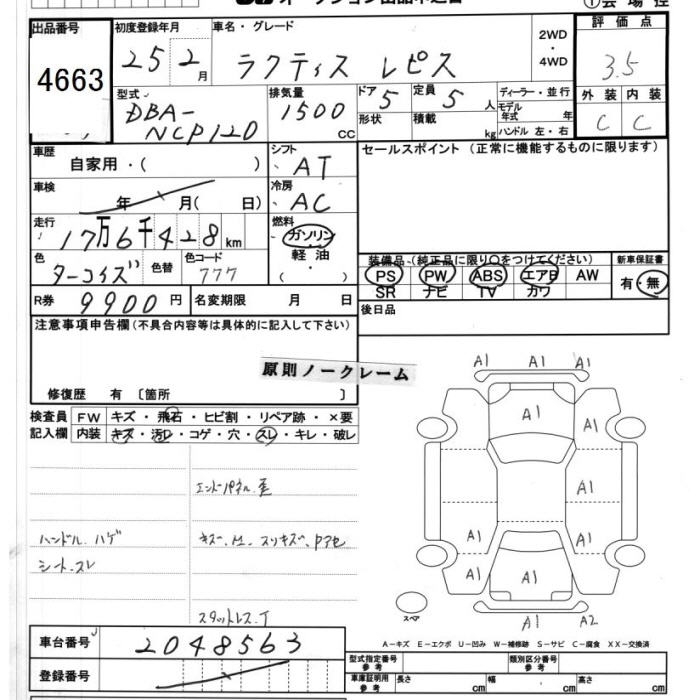 オークション出品申込書
①会場控
出品番号
4663
初度登録年月
25 2月
車名・グレード
ラクティス レピス
2WD
・
4WD
評価点
3.5
外装 内装
C C
型式
DBA-
NCP120
排気量
1500 CC
ドア 5
形状
定員 5 人
積載 kg
ディーラー・並行
モデル年式 年
ハンドル 左・右
車歴
自家用・( )
シフト
AT
車検
年 月( 日)
冷房
AC
走行
17万6千428km
燃料
ガソリン
・
軽油
・
( )
色
ターコイズ
色替
色コード
777
R券 9900円
名変期限 月 日
セールスポイント(正常に機能するものに限ります)
装備品(純正品に限り○をつけてください)
PS PW ABS エアB AW
SR ナビ TV カワ
新車保証書
有・無
後日品
注意事項申告欄(不具合内容等は具体的に記入して下さい)
原則ノークレーム
修復歴 有〔箇所 〕
検査員
記入欄
FW キズ・飛石・ヒビ割・リペア跡・×要
内装 キズ・汚レ・コゲ・穴・スレ・キレ・破レ
エンドパネル歪
ハンドル.ハゲ
シート.スレ
スタットレス.T
A1 A1 A1
A1
A1
A1
A1 A1
A1 A1 A1
A1 A2
スペア
A-キズ E-エクボ U-凹み W-補修跡 S-サビ C-腐食 XX-交換済
車台番号
2048563
登録番号
型式指定番号
参考
類別区分番号
参考
車庫証明用
参考
長さ cm
幅 cm
高さ cm